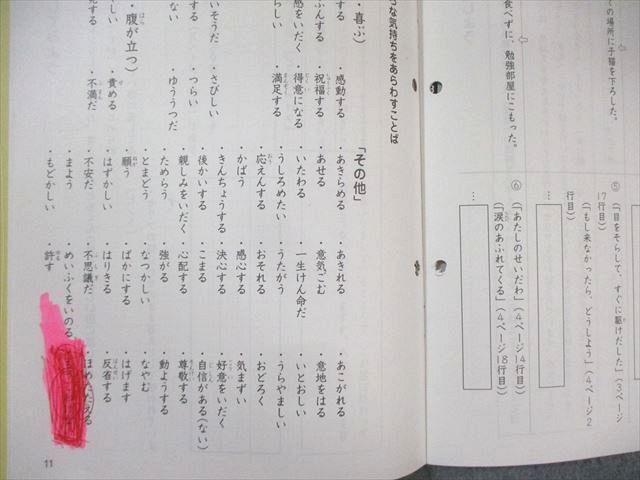 の場所に子猫を下ろした。
食べずに、勉強部屋にこもった。
⑤
(「目をそらして、すぐに駆けだした」(3ページ
17行目))
(「もし来なかったら、どうしよう」(4ページ2
行目))
…
⑥
(「あたしのせいだわ」(4ページ14行目))
(「涙のあふれてくる」(4ページ18行目))
…
な気持ちをあらわすことば
・喜ぶ)
・感動する
・祝福する
・得意になる
・満足する
・さびしい
・つらい
・ゆううつだ
・腹が立つ)
・責める
・不満だ
「その他」
・あきらめる
・あきれる
・あこがれる
・あせる
・意気ごむ
・意地をはる
・いたわる
・一生けん命だ
・いとおしい
・うしろめたい
・うたがう
・うらやましい
・応えんする
・おそれる
・おどろく
・かばう
・感心する
・気まずい
・きんちょうする
・決心する
・好意をいだく
・後かいする
・こまる
・自信がある(ない)
・親しみをいだく
・心配する
・尊敬する
・ためらう
・強がる
・動ようする
・とまどう
・なつかしい
・なやむ
・願う
・ばかにする
・はげます
・はずかしい
・はりきる
・反省する
・不安だ
・不思議だ
・ほめたたえる
・まよう
・めいふくをいのる
・もどかしい
・許す
11